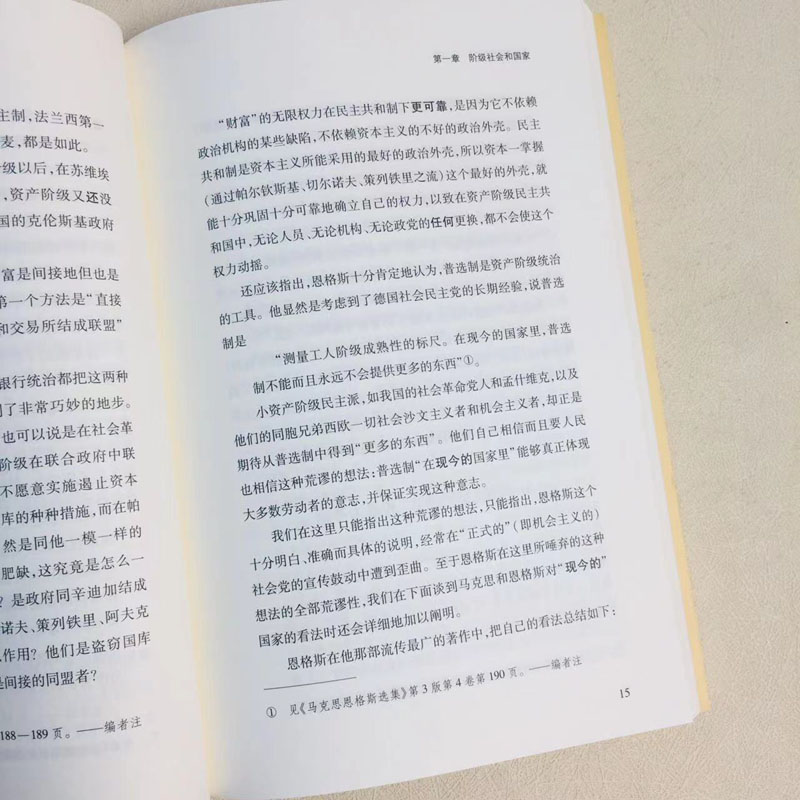 主制，法兰西第一
麦，都是如此。
级以后，在苏维埃
，资产阶级又还没
国的克伦斯基政府
富是间接地但也是
第一个方法是“直接
和交易所结成联盟”
银行统治都把这两种
到了非常巧妙的地步。
也可以说是在社会革
阶级在联合政府中联
不愿意实施遏止资本
库的种种措施，而在帕
然是同他一模一样的
肥缺，这究竟是怎么一
？是政府同辛迪加结成
诺夫、策列铁里、阿夫克
作用？他们是盗窃国库
是间接的同盟者？
188—189 页。——编者注
第一章 阶级社会和国家
“财富”的无限权力在民主共和制下更可靠，是因为它不依赖
政治机构的某些缺陷，不依赖资本主义的不好的政治外壳。民主
共和制是资本主义所能采用的最好的政治外壳，所以资本一掌握
（通过帕尔钦斯基、切尔诺夫、策列铁里之流）这个最好的外壳，就
能十分巩固十分可靠地确立自己的权力，以致在资产阶级民主共
和国中，无论人员、无论机构、无论政党的任何更换，都不会使这个
权力动摇。
还应该指出，恩格斯十分肯定地认为，普选制是资产阶级统治
的工具。他显然是考虑到了德国社会民主党的长期经验，说普选
制是
“测量工人阶级成熟性的标尺。在现今的国家里，普选
制不能而且永远不会提供更多的东西”①。
小资产阶级民主派，如我国的社会革命党人和孟什维克，以及
他们的同胞兄弟西欧一切社会沙文主义者和机会主义者，却正是
期待从普选制中得到“更多的东西”。他们自己相信而且要人民
也相信这种荒谬的想法：普选制“在现今的国家里”能够真正体现
大多数劳动者的意志，并保证实现这种意志。
我们在这里只能指出这种荒谬的想法，只能指出，恩格斯这个
十分明白、准确而具体的说明，经常在“正式的”（即机会主义的）
社会党的宣传鼓动中遭到歪曲。至于恩格斯在这里所唾弃的这种
想法的全部荒谬性，我们在下面谈到马克思和恩格斯对“现今的”
国家的看法时还会详细地加以阐明。
恩格斯在他那部流传最广的著作中，把自己的看法总结如下：
① 见《马克思恩格斯选集》第 3 版第 4 卷第 190 页。——编者注
15